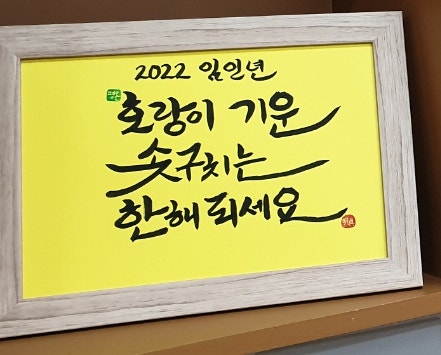 2022 임인년
호랑이 기운
솟구치는
한해 되세요